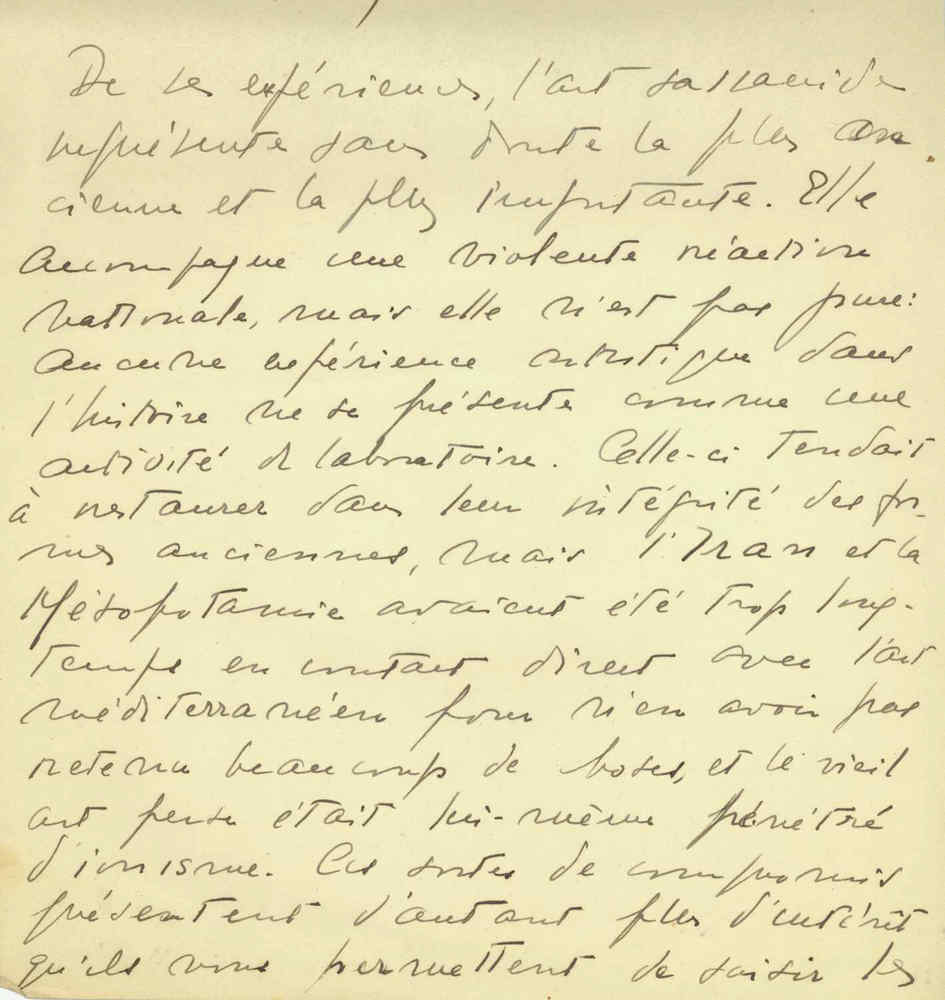 De ces expériences, l'art sassanide
représente sans doute la plus an
cienne et la plus importante. Elle
accompagne une violente réaction
nationale, mais elle n'est pas pure:
aucune expérience artistique dans
l'histoire ne se présente comme une
activité de laboratoire. Celle-ci tendait
à restaurer dans leur intégrité des for-
mes anciennes, mais l'Iran et la
Mésopotamie avaient été trop long-
temps en contact direct avec l'art
méditerranéen pour n'en avoir pas
retenu beaucoup de choses, et le vieil
art perse était lui-même pénétré
d'ionisme. Ces sortes de compromis
présentent d'autant plus d'intérêt
qu'ils nous permettent de saisir les